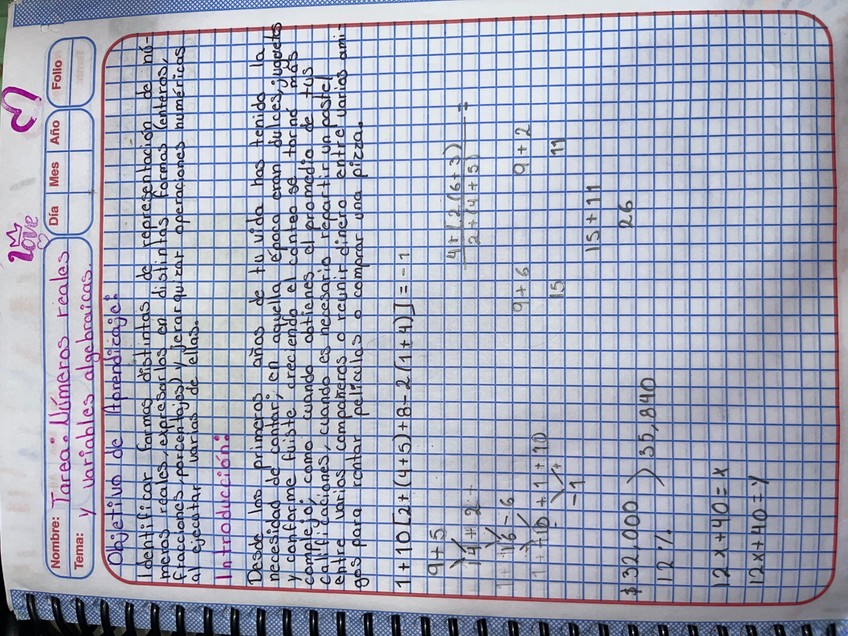 Love
Nombre: Tarea: Números reales
Tema: y variables algebraicas.
Día Mes Año Folio
Objetivo de Aprendizaje:
Identificar formas distintas de representación de nú-
meros reales, expresarlos en distintas formas (enteros,
fracciones, porcentajes) y jerarquizar operaciones numéricas
al ejecutar varias de ellas.
Introducción:
Desde los primeros años de tu vida has tenido la
necesidad de contar; en aquella época eran dulces, juguetes
y conforme fuiste creciendo el conteo se tornó más
complejo; como cuando obtienes el promedio de tus
calificaciones, cuando es necesario repartir un pastel
entre varios compañeros o reunir dinero entre varios ami-
gos para rentar películas o comprar una pizza.
1+10[2+(4+5)+8-2(1+4)]=-1
4+(2(6+3)
2+(4+5) =
9+5
14+2
9+6 9+2
16-6
15 11
10+1+10
-1
15+11
26
$32,000
12% > 35,840
12x+40=x
12x+40=y